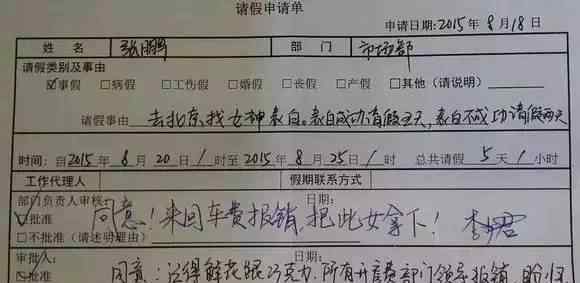 请假申请单
申请日期:2015年8月18日
姓名 张鹏 部门 市场部
请假类别及事由
☑事假 □病假 □工伤假 □婚假 □丧假 □产假 □其他(请说明)
请假事由 去北京找女神表白。表白成功请假五天,表白不成功请假两天
时间:自2015年8月20日 / 时至2015年8月25日 / 时 总共请假 5 天 / 小时
工作代理人 假期联系方式
部门负责人审核: 日期:
☑批准 同意!来回车费报销,把此女拿下! 李
□不批准(请述明理由)
审批人: 日期:
☑批准 同意:记得鲜花跟巧克力,所有开费部门领导报销,盼归